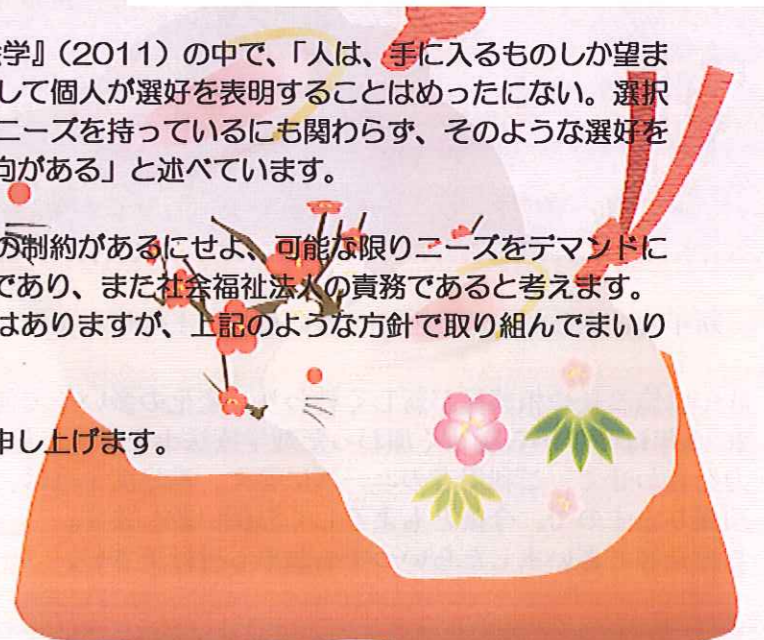 会学』（2011）の中で、「人は、手に入るものしか望ま
して個人が選好を表明することはめったにない。選択
ニーズを持っているにも関わらず、そのような選好を
向がある」と述べています。
の制約があるにせよ、可能な限りニーズをデマンドに
であり、また社会福祉法人の責務であると考えます。
はありますが、上記のような方針で取り組んでまいり
申し上げます。